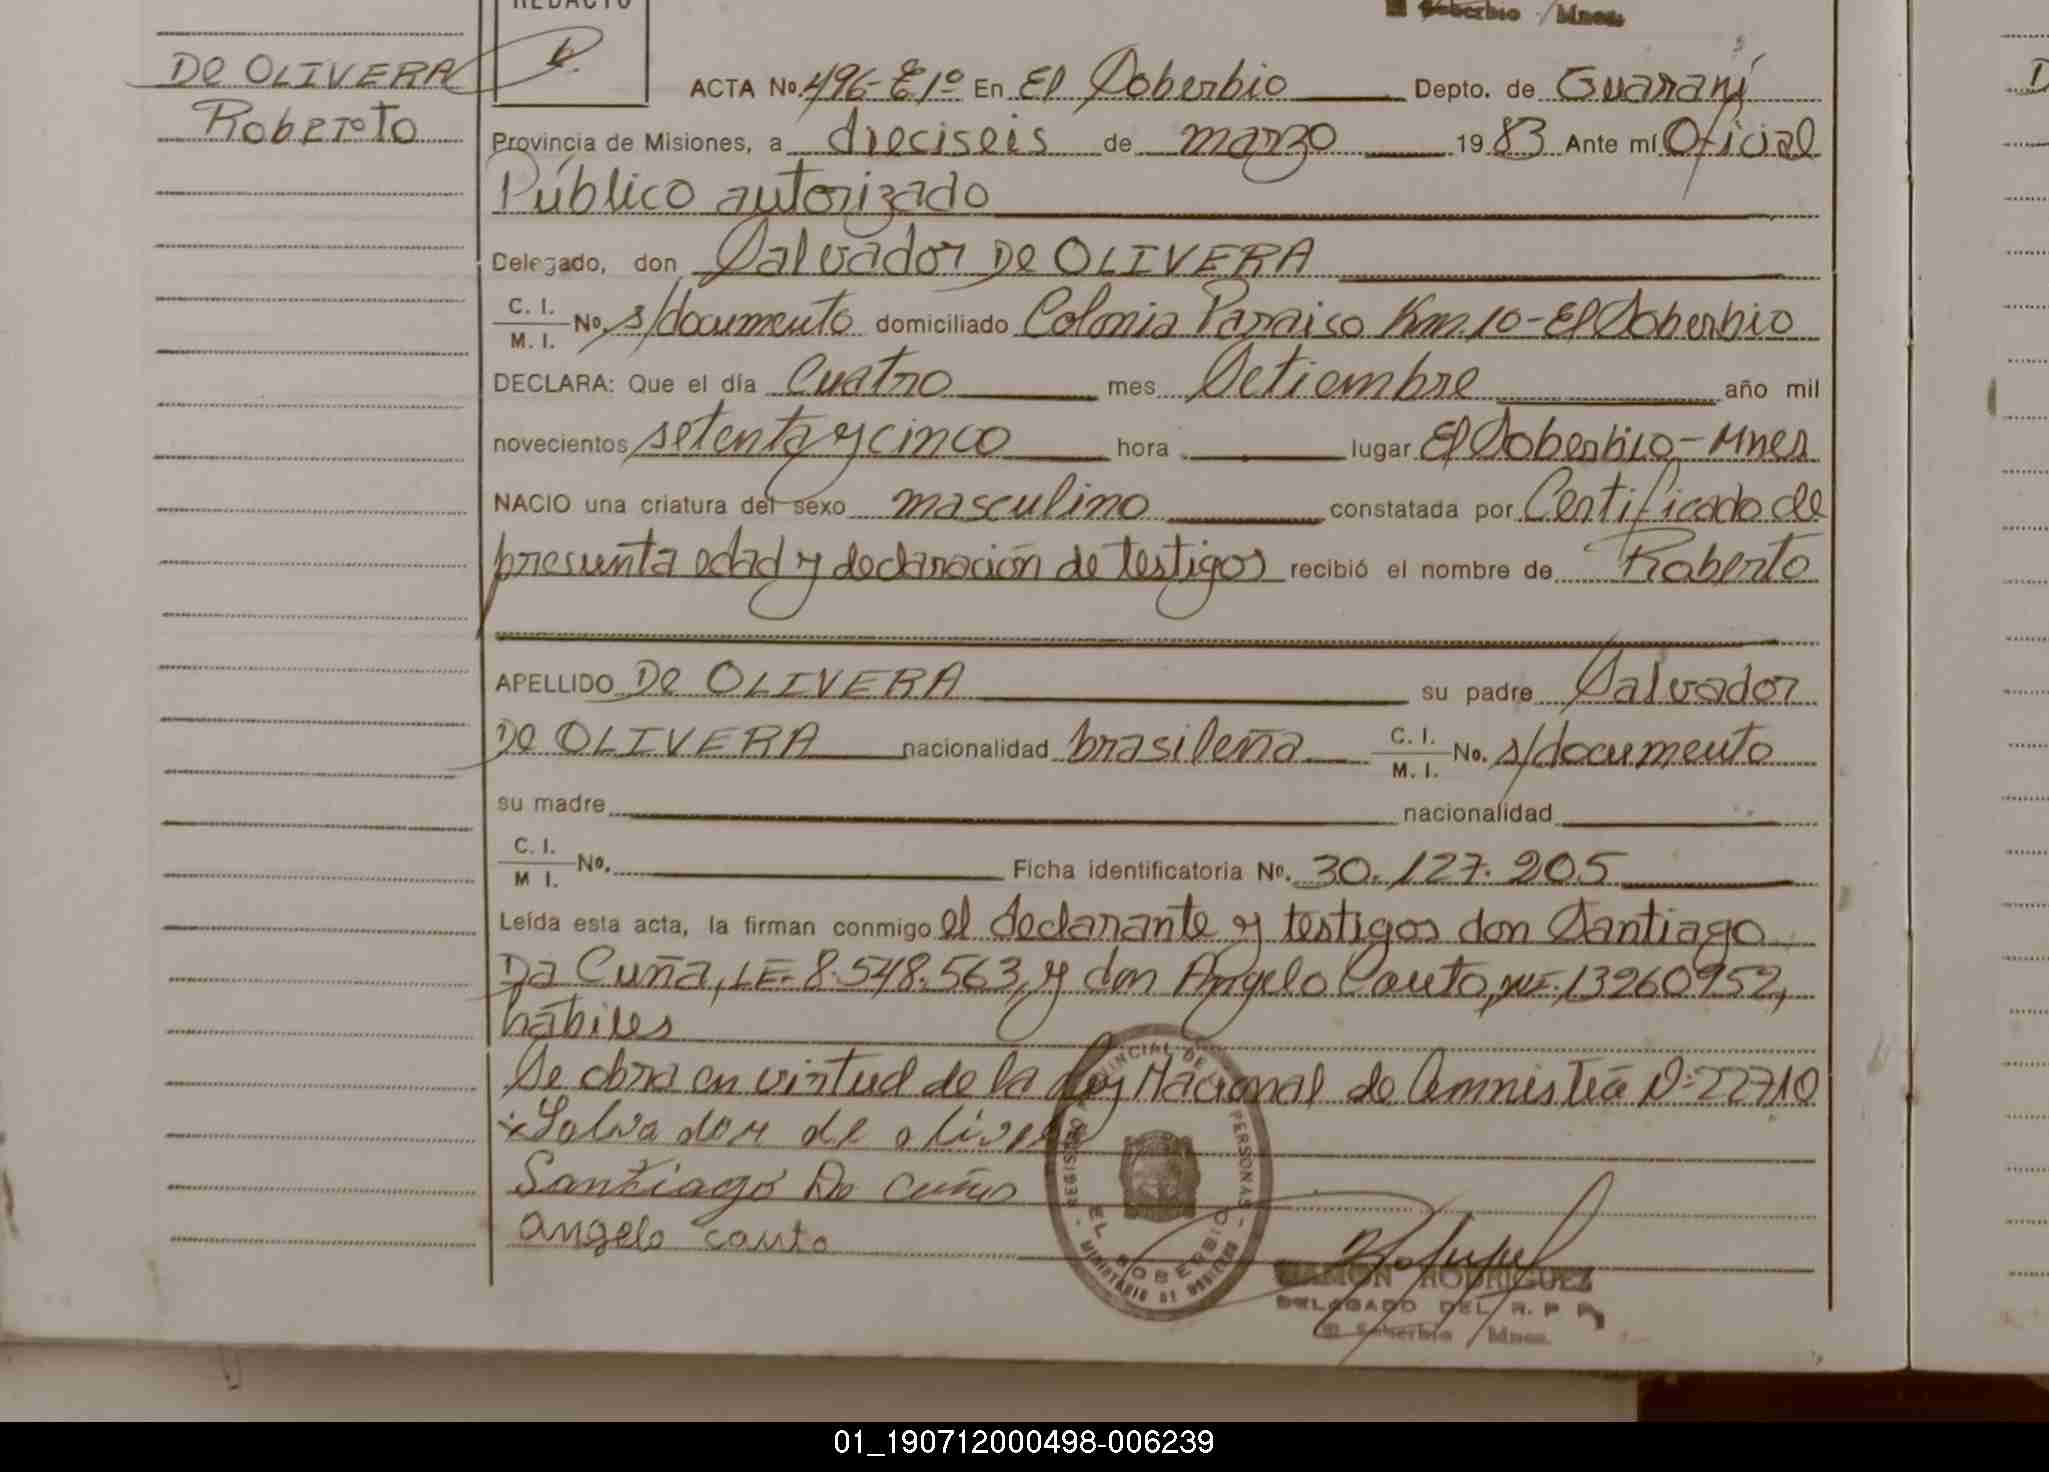 REDACTO
El Soberbio / Mnes.
DE OLIVERA
Roberto
ACTA No. 496-E1º En El Soberbio Depto. de Guaraní
Provincia de Misiones, a dieciseis de marzo 1983 Ante mí Oficial
Público autorizado
Delegado, don Salvador DE OLIVERA
C. I.
M. I. No. s/documento domiciliado Colonia Paraiso Km. 10-El Soberbio
DECLARA: Que el día cuatro mes Setiembre año mil
novecientos setenta y cinco hora lugar El Soberbio-Mnes
NACIO una criatura del sexo masculino constatada por Certificado de
presunta edad y declaración de testigos recibió el nombre de Roberto
APELLIDO DE OLIVERA su padre Salvador
DE OLIVERA nacionalidad brasileña C. I. M. I. No. s/documento
su madre nacionalidad
C. I.
M I. No. Ficha identificatoria No. 30.127.205
Leída esta acta, la firman conmigo el declarante y testigos don Santiago
Da Cuña, LE. 8.548.563, y don Angelo Couto, 13260952,
hábiles
Se obra en virtud de la Ley Nacional de Amnistía Nº 22710
Salvador de oliver
Santiago Da Cuña
angelo couto
REGISTRO PROVINCIAL DE PERSONAS
EL SOBERBIO
MINISTERIO DE GOBIERNO
RAMON RODRIGUEZ
DELEGADO DEL R. P P
El Soberbio / Mnes.
01_190712000498-006239